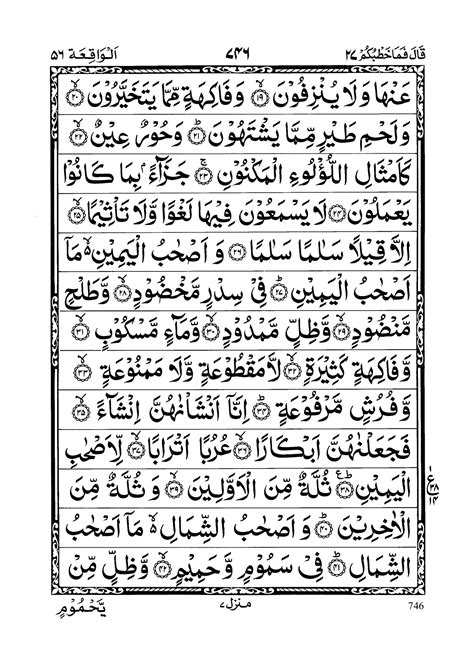 قَالَ فَمَا خَطْبُكُمْ ٢٧ ٧٤٦ اَلْوَاقِعَة ٥٦
عَنْهَا وَلَا يُنْزِفُوْنَ ۙ‏﴿۱۹﴾ وَفَاكِهَةٍ مِّمَّا يَتَخَيَّرُوْنَ ۙ‏﴿۲۰﴾
وَلَحْمِ طَيْرٍ مِّمَّا يَشْتَهُوْنَ ؕ‏﴿۲۱﴾ وَحُوْرٌ عِيْنٌ ۙ‏﴿۲۲﴾
كَاَمْثَالِ اللُّؤْلُوءِ الْمَكْنُوْنِ ۚ‏﴿۲۳﴾ جَزَآءًۢ بِمَا كَانُوْا
يَعْمَلُوْنَ ﴿۲۴﴾ لَا يَسْمَعُوْنَ فِيْهَا لَغْوًا وَّلَا تَاْثِيْمًا ۙ‏﴿۲۵﴾
اِلَّا قِيْلًا سَلٰمًا سَلٰمًا ﴿۲۶﴾ وَاَصْحٰبُ الْيَمِيْنِ ۙ مَاۤ
اَصْحٰبُ الْيَمِيْنِ ؕ‏﴿۲۷﴾ فِىْ سِدْرٍ مَّخْضُوْدٍ ۙ‏﴿۲۸﴾ وَّطَلْحٍ
مَّنْضُوْدٍ ۙ‏﴿۲۹﴾ وَّظِلٍّ مَّمْدُوْدٍ ۙ‏﴿۳۰﴾ وَّمَآءٍ مَّسْكُوْبٍ ۙ‏﴿۳۱﴾
وَّفَاكِهَةٍ كَثِيْرَةٍ ۙ‏﴿۳۲﴾ لَّا مَقْطُوْعَةٍ وَّلَا مَمْنُوْعَةٍ ۙ‏﴿۳۳﴾
وَّفُرُشٍ مَّرْفُوْعَةٍ ؕ‏﴿۳۴﴾ اِنَّاۤ اَنْشَاْنٰهُنَّ اِنْشَآءً ۙ‏﴿۳۵﴾
فَجَعَلْنٰهُنَّ اَبْكَارًا ۙ‏﴿۳۶﴾ عُرُبًا اَتْرَابًا ۙ‏﴿۳۷﴾ لِّاَصْحٰبِ
الْيَمِيْنِ ؕ‏﴿۳۸﴾ ثُلَّةٌ مِّنَ الْاَوَّلِيْنَ ۙ‏﴿۳۹﴾ وَثُلَّةٌ مِّنَ
الْاٰخِرِيْنَ ؕ‏﴿۴۰﴾ وَاَصْحٰبُ الشِّمَالِ ۙ مَاۤ اَصْحٰبُ
الشِّمَالِ ؕ‏﴿۴۱﴾ فِىْ سَمُوْمٍ وَّحَمِيْمٍ ۙ‏﴿۴۲﴾ وَّظِلٍّ مِّنْ
ع ٣٨ ١٤
يَّحْمُوْمٍ منزل ٧ 746